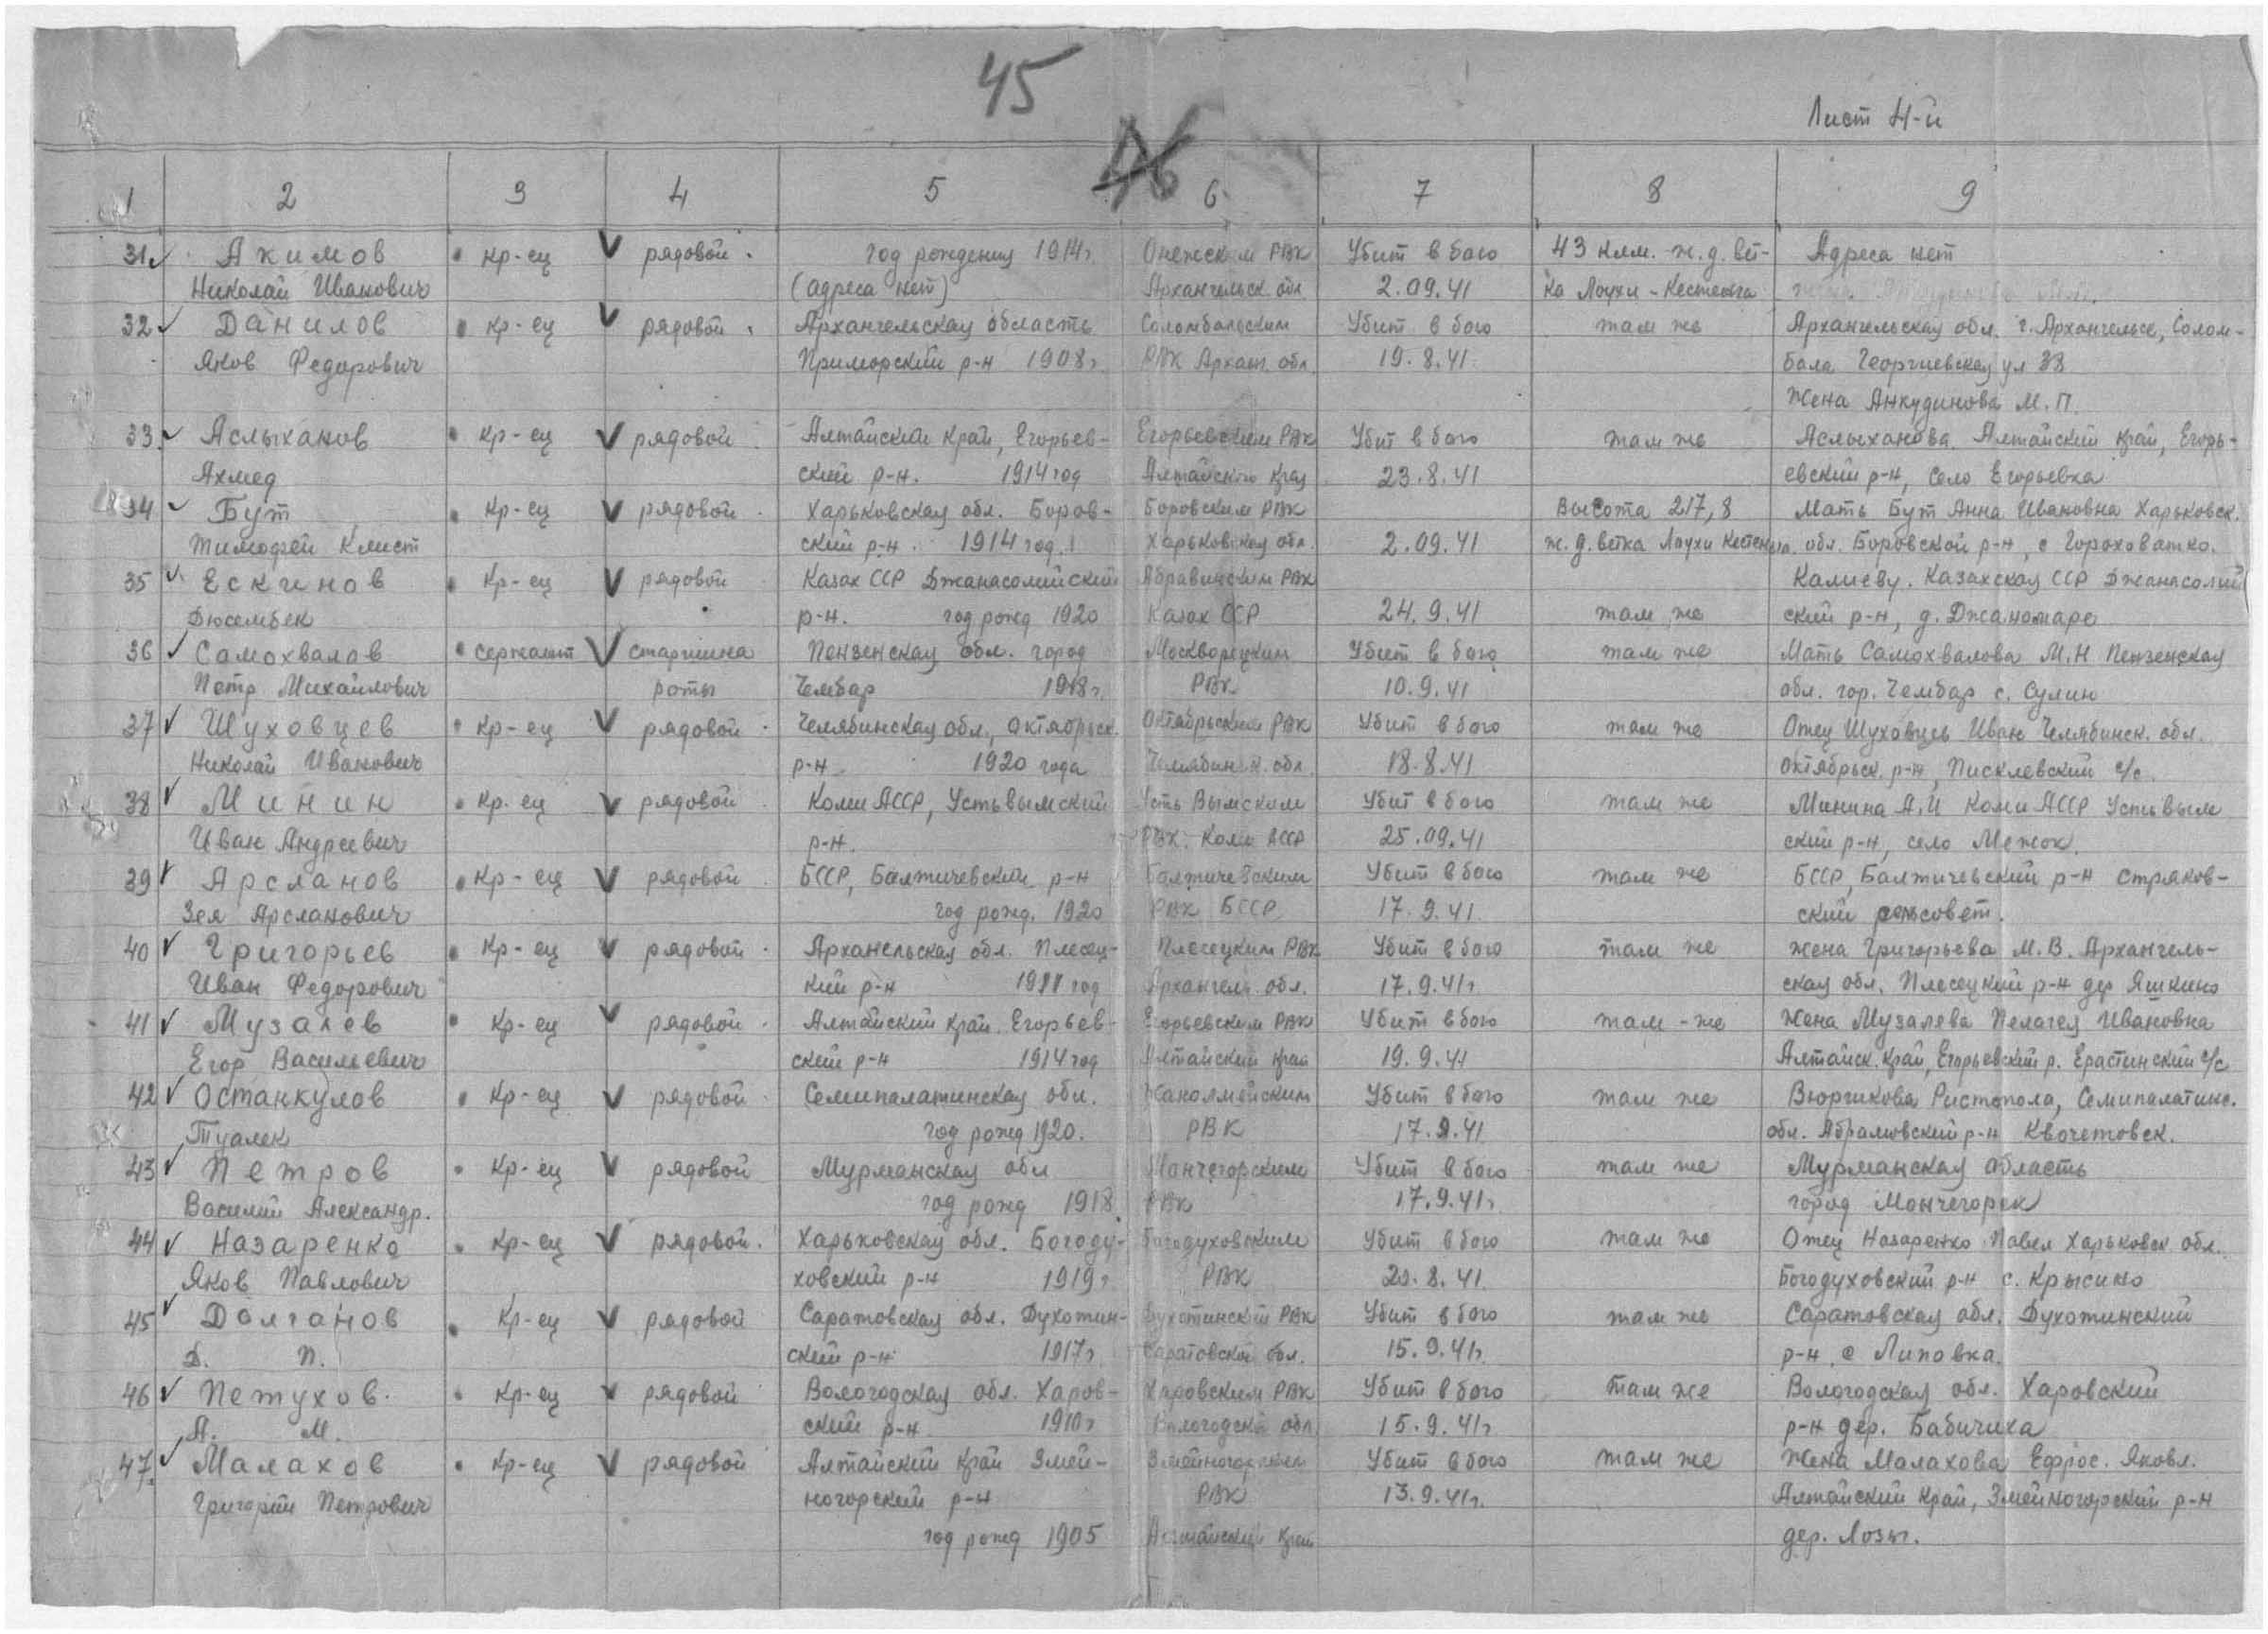 45
46
Лист 4-й
1 2 3 4 5 6 7 8 9
31 Акимов кр-ец рядовой год рождения 1914г. Онежским РВК Убит в бою 43 клм. ж.д. вет- Адреса нет
Николай Иванович (адреса нет) Архангельск. обл. 2.09.41 ка Лоухи-Кестенга
32 Данилов кр-ец рядовой Архангельская область Соломбальским Убит в бою там же Архангельская обл. г. Архангельск, Солом-
Яков Федорович Приморский р-н 1908г. РВК Арханг. обл. 19.8.41 бала Георгиевская ул 38
Жена Анкудинова М.П.
33 Аслыханов кр-ец рядовой Алтайский край, Егорьев- Егорьевским РВК Убит в бою там же Аслыханова Алтайский край, Егорь-
Ахмед ский р-н. 1914 год Алтайского края 23.8.41 евский р-н, село Егорьевка
34 Бут кр-ец рядовой Харьковская обл. Боров- Боровским РВК Высота 217,8 Мать Бут Анна Ивановна Харьковск.
Тимофей Клист ский р-н. 1914 год. Харьковская обл. 2.09.41 ж.д. ветка Лоухи Кестеньга. обл. Боровской р-н, с Гороховатко.
35 Ескинов кр-ец рядовой Казах ССР Джанасомийский Абравинским РВК Калиеву. Казахская ССР Джанасолий
Дюсембек р-н. год рожд 1920 Казах ССР 24.9.41 там же ский р-н, д. Джаномаре
36 Самохвалов сержант старшина Пензенская обл. город Москворецким Убит в бою там же Мать Самохвалова М.Н Пензенская
Петр Михайлович роты Чембар 1918г. РВК 10.9.41 обл. гор. Чембар с. Сулин
37 Шуховцев кр-ец рядовой Челябинская обл., Октябрьск. Октябрьским РВК Убит в бою там же Отец Шуховцев Иван Челябинск. обл.
Николай Иванович р-н 1920 года Челябинск. обл. 18.8.41 Октябрьск. р-н, Писклевский с/с.
38 Минин кр-ец рядовой Коми АССР, Устьвымский Усть Вымским Убит в бою там же Минина А.И Коми АССР Устьвым
Иван Андреевич р-н. РВК. Коми АССР 25.09.41 ский р-н, село Межок.
39 Арсланов кр-ец рядовой БССР, Балтичевский р-н Балтичевским Убит в бою там же БССР, Балтичевский р-н Стряков-
Зея Арсланович год рожд. 1920 РВК БССР 17.9.41 ский сельсовет.
40 Григорьев кр-ец рядовой Архангельская обл. Плесец- Плесецким РВК Убит в бою там же жена Григорьева М.В. Архангель-
Иван Федорович кий р-н 1911 год Архангель. обл. 17.9.41г. ская обл. Плесецкий р-н дер Яшкино
41 Музалев кр-ец рядовой Алтайский край. Егорьев- Егорьевским РВК Убит в бою там-же Жена Музалева Пелагея Ивановна
Егор Васильевич ский р-н 1914 год Алтайский край 19.9.41 Алтайск. край, Егорьевский р. Ерастинский с/с
42 Останкулов кр-ец рядовой Семипалатинская обл. Жанолмейским Убит в бою там же Вюргикова Ристопола, Семипалатинс.
Туалек год рожд 1920. РВК 17.9.41 обл. Абрамовский р-н Квочетовск.
43 Петров кр-ец рядовой Мурманская обл Мончегорским Убит в бою там же Мурманская область
Василий Александр. год рожд 1918 РВК 17.9.41г. город Мончегорск
44 Назаренко кр-ец рядовой. Харьковская обл. Богоду- Богодуховским Убит в бою там же Отец Назаренко Павел Харьковск обл.
Яков Павлович ховский р-н 1919г. РВК 20.8.41. Богодуховский р-н с. Крысино
45 Долганов кр-ец рядовой Саратовская обл. Духотин- Духотинский РВК Убит в бою там же Саратовская обл. Духотинский
Д. П. ский р-н 1917г. Саратовской обл. 15.9.41г. р-н, с Липовка.
46 Петухов. кр-ец рядовой Вологодская обл. Харов- Харовским РВК Убит в бою там же Вологодская обл. Харовский
А. М. ский р-н 1910г Вологодской обл. 15.9.41г р-н дер. Бабичиха
47. Малахов кр-ец рядовой Алтайский край Змей- Змейногорским Убит в бою там же Жена Малахова Ефрос. Яковл.
Григорий Петрович ногорский р-н РВК 13.9.41г. Алтайский край, Змейногорский р-н
год рожд 1905 Алтайский край дер. Лозы.